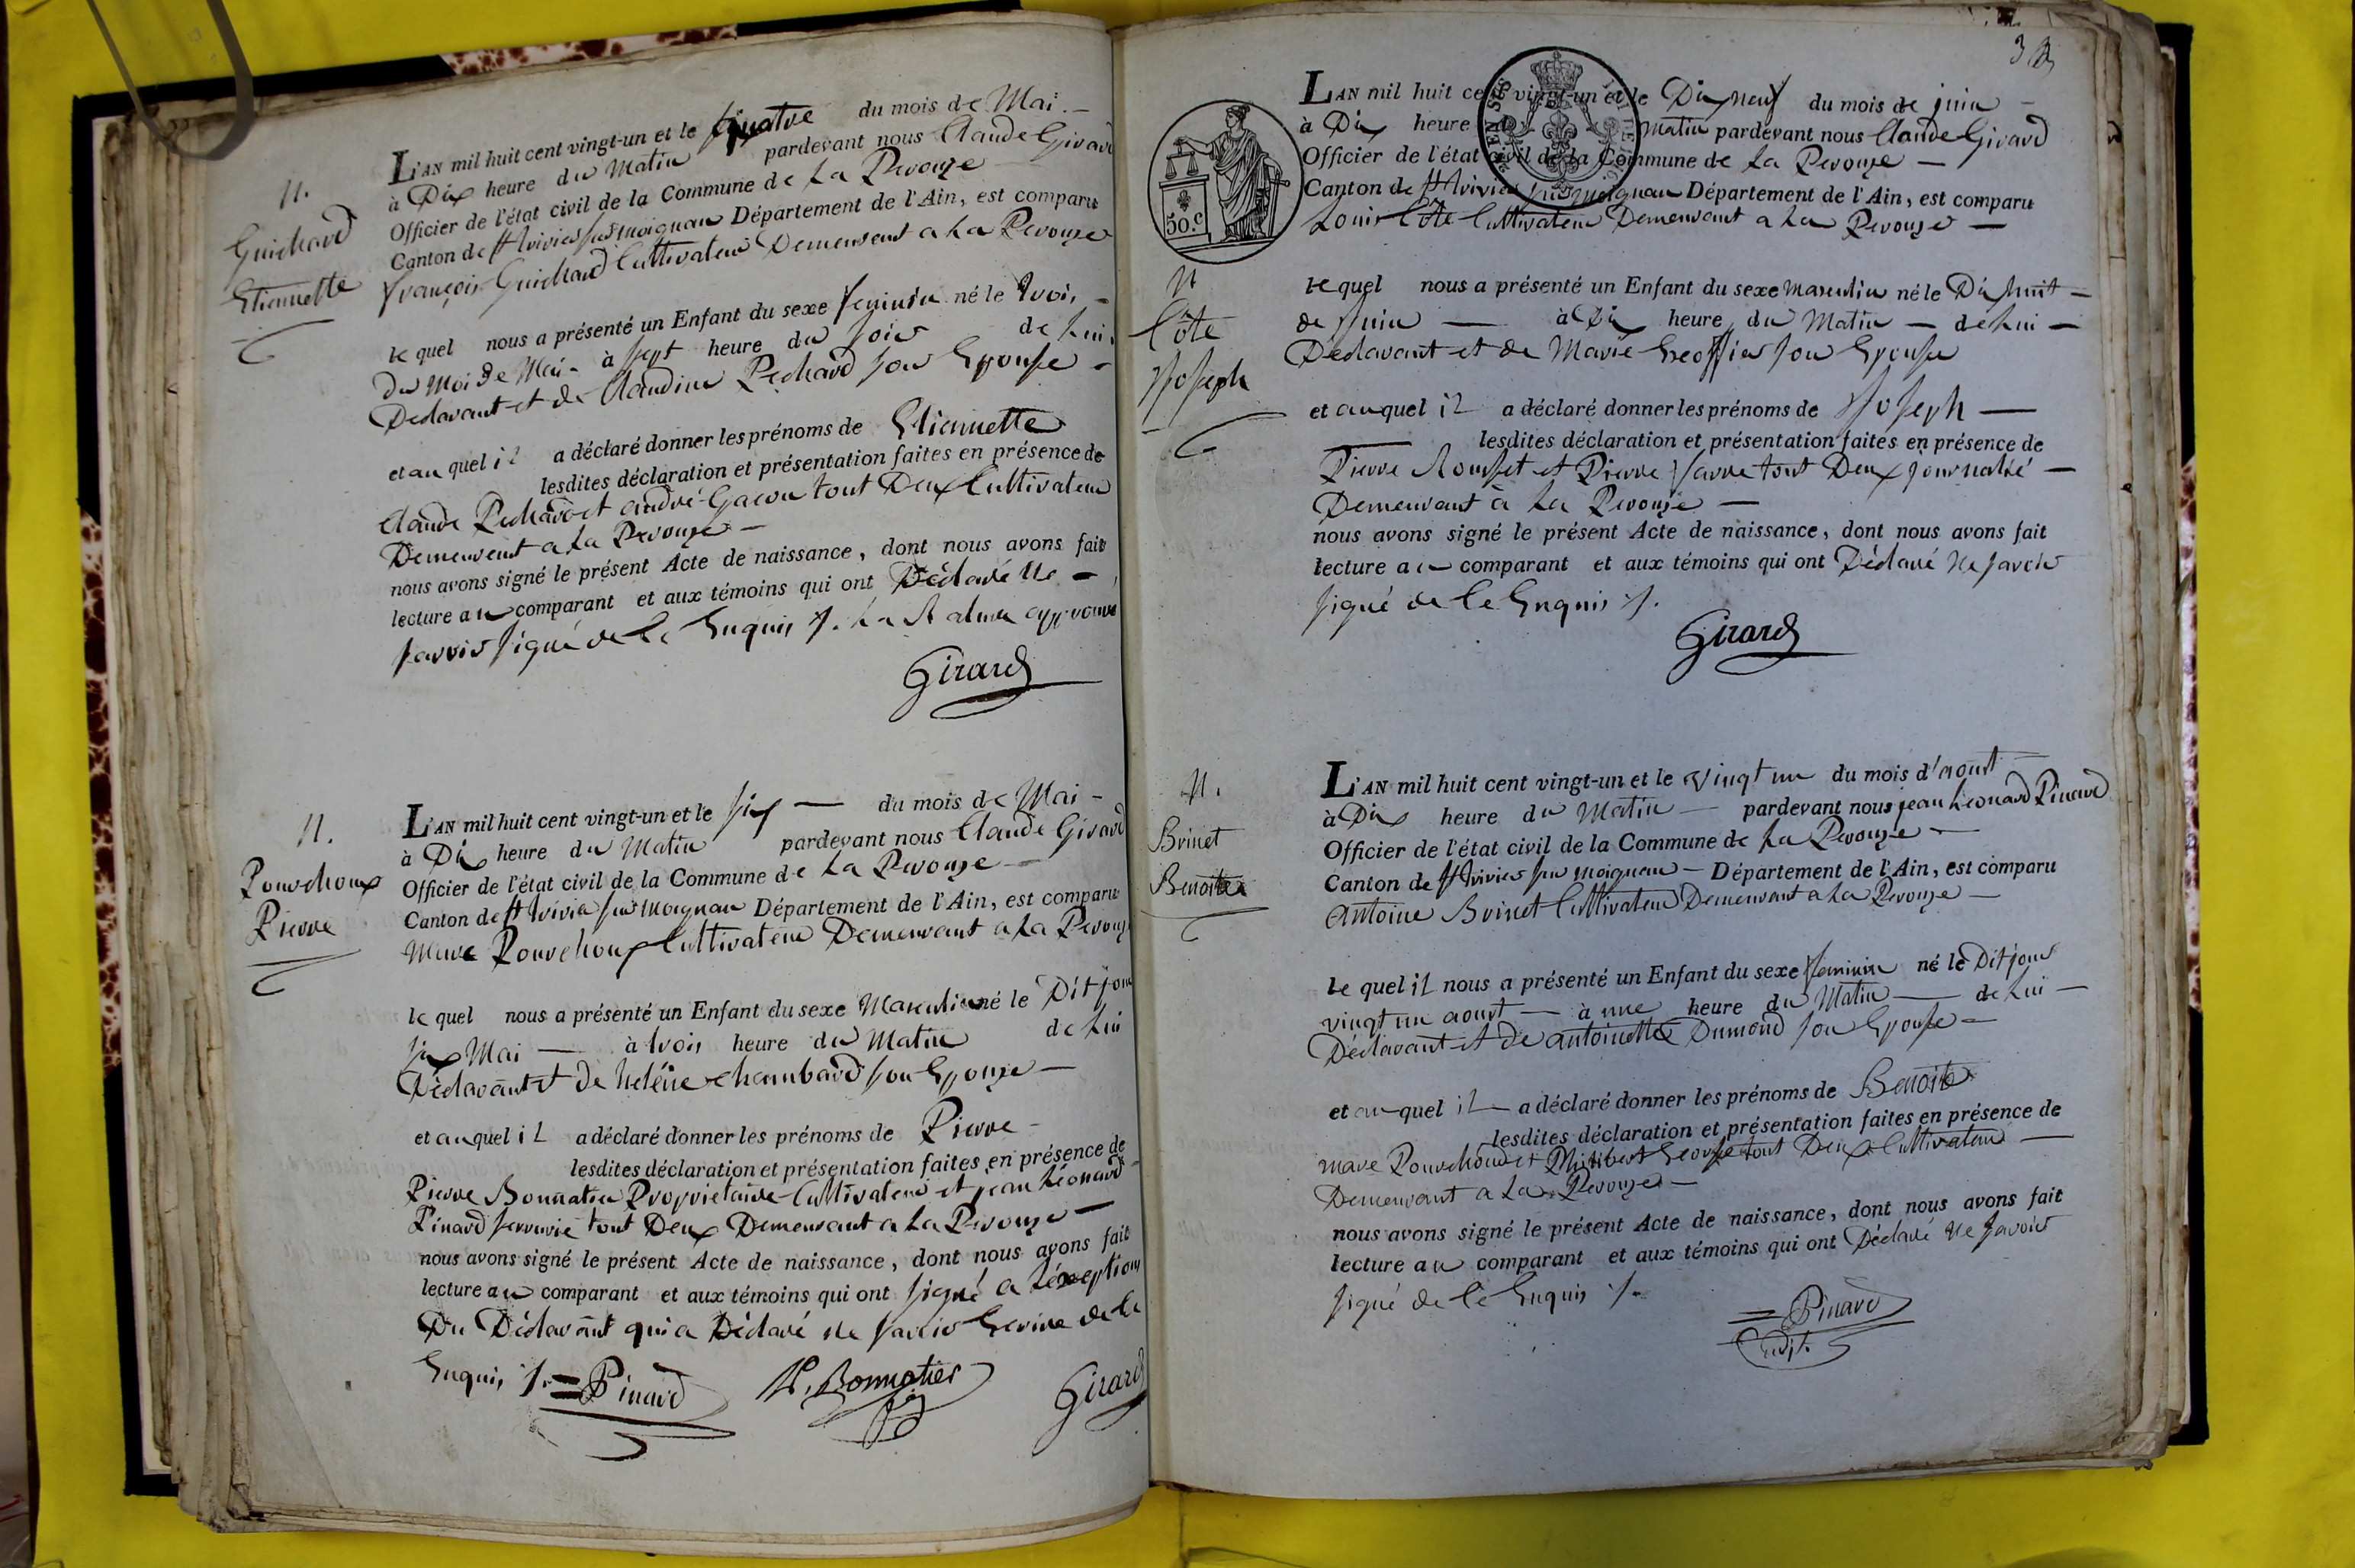 N.
Guichard
Etiennette
L'AN mil huit cent vingt-un et le quatre du mois de Mai -
à Dix heure du Matin pardevant nous Claude Girard
Officier de l'état civil de la Commune de La Perouze
Canton de St trivier sur moignan Département de l'Ain, est comparu
françois Guichard Cultivateur Demeurent a La Perouze
le quel nous a présenté un Enfant du sexe feminin né le trois -
du Moi de Mai - à sept heure du soir de lui
Declarant et de Claudine Pechard son Epouse -
et au quel il a déclaré donner les prénoms de Etiennette
lesdites déclaration et présentation faites en présence de
Claude Pechard et andré Gacon tout Deux Cultivateur
Demeurent a La Perouze -
nous avons signé le présent Acte de naissance, dont nous avons fait
lecture au comparant et aux témoins qui ont Déclaré Ne -
savoir signé de Ce Enquis /. La Rature approuvé
Girard
N.
Pourchoux
Pierre
L'AN mil huit cent vingt-un et le six - du mois de Mai -
à Dix heure du Matin pardevant nous Claude Girard
Officier de l'état civil de la Commune de La Perouze -
Canton de St trivier sur Moignan Département de l'Ain, est comparu
Marc Pourchoux Cultivateur Demeurant a La Perouze
le quel nous a présenté un Enfant du sexe Masculin né le Dit jour
six Mai - à trois heure du Matin de lui
Déclarant et de heléne chambard son Epouze -
et au quel il a déclaré donner les prénoms de Pierre -
lesdites déclaration et présentation faites en présence de
Pierre Bonnatier Proprietaire Cultivateur et jean Léonard
Pinard serrurié tout Deux Demeurant a La Perouze -
nous avons signé le présent Acte de naissance, dont nous avons fait
lecture au comparant et aux témoins qui ont signé a léxeption
Du Déclarant qui a Déclaré ne savoir Ecrire de Ce
Enquis /. = Pinard P. Bonnatier Girard
3
50.c
L'AN mil huit cent vingt-un et le Dix neuf du mois de juin -
à Dix heure du Matin pardevant nous Claude Girard
Officier de l'état civil de la Commune de La Perouze -
Canton de St trivier sur moignan Département de l'Ain, est comparu
Louis Côte Cultivateur Demeurant a La Perouze -
N
Côte
Joseph
le quel nous a présenté un Enfant du sexe Masculin né le Dix huit -
de juin - à Dix heure du Matin - de lui -
Déclarant et de Marie son Epouse
et au quel il a déclaré donner les prénoms de Joseph -
lesdites déclaration et présentation faites en présence de
Pierre Rousset et Pierre tout Deux journalié -
Demeurant à La Perouze -
nous avons signé le présent Acte de naissance, dont nous avons fait
lecture au comparant et aux témoins qui ont Déclaré Ne savoir
signé de Ce Enquis /.
Girard
N.
Brinet
Benoite
L'AN mil huit cent vingt-un et le vingt un du mois d'aoust -
à Dix heure du Matin - pardevant nous jean Léonard Pinard
Officier de l'état civil de la Commune de La Perouze -
Canton de St trivier sur moignan - Département de l'Ain, est comparu
Antoine Brinet Cultivateur Demeurant a La Perouze -
le quel il nous a présenté un Enfant du sexe feminin né le Dit jour
vingt un aoust - à une heure du Matin - de lui -
Déclarant et de antoinette Dumond son Epouse -
et au quel il - a déclaré donner les prénoms de Benoite
lesdites déclaration et présentation faites en présence de
marc Pourchoud et Philibert tout Deux Cultivateur -
Demeurant a La Perouze -
nous avons signé le présent Acte de naissance, dont nous avons fait
lecture au comparant et aux témoins qui ont Déclaré Ne savoir
signé de Ce Enquis /.
= Pinard
adjt.